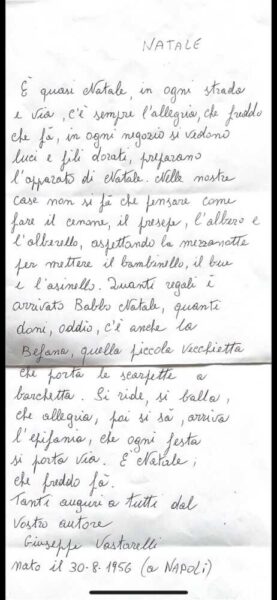 NATALE
È quasi Natale, in ogni strada
e via, c'è sempre l'allegria, che freddo
che fà, in ogni negozio si vedono
luci e fili dorati, preparano
l'apparato di Natale. Nelle nostre
case non si fà che pensare come
fare il cenone, il presepe, l'albero e
l'alberello, aspettando la mezzanotte
per mettere il bambinello, il bue
e l'asinello. Quanti regali è
arrivato Babbo Natale, quanti
doni, oddio, c'è anche la
Befana, quella piccola vecchietta
che porta le scarpette a
barchetta. Si ride, si balla,
che allegria, poi si sà, arriva
l'epifania, che ogni festa
si porta via. È Natale,
che freddo fà.
Tanti auguri a tutti dal
Vostro autore
Giuseppe Vastarelli
nato il 30-8-1956 (a NAPOLI)